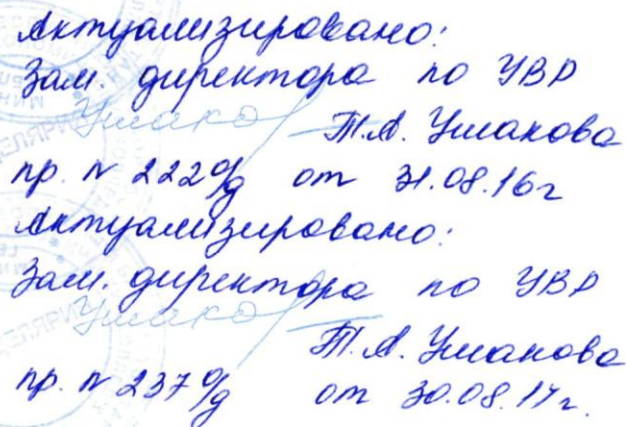 Актуализировано:
Зам. директора по УВР
Ушако
Т.А. Ушакова
пр. № 222 о/д от 31.08.16г
Актуализировано:
Зам. директора по УВР
Ушако
Т.А. Ушакова
пр. № 237 о/д от 30.08.17г.